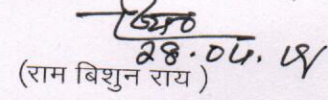 28.04.
(राम बिशुन राय )